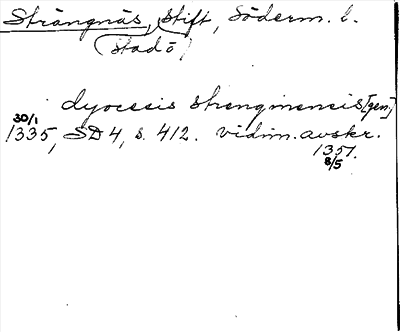 Strängnäs, stift, Söderm. l.
(stad ö)
dyocesis strenginensis [gen.]
30/1
1335, SD 4, s. 412. vidim. avskr.
1351.
8/5